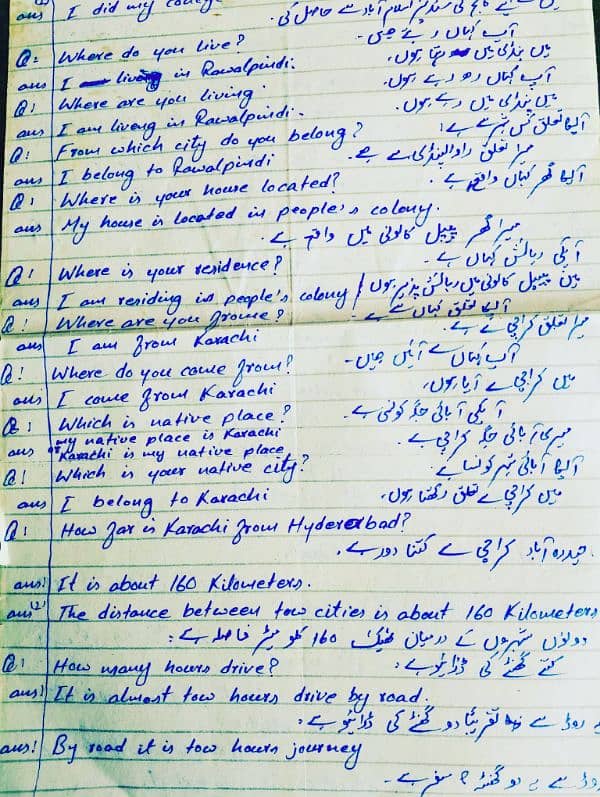 I did my
Q: Where do you live? آپ کہاں رہتے ہیں
ans I live in Rawalpindi. میں پنڈی میں رہتا ہوں۔
Q: Where are you living. آپ کہاں رہ رہے ہوں۔
ans I am living in Rawalpindi. میں پنڈی میں رہے ہوں۔
Q: From which city do you belong? آپکا تعلق کس شہر سے ہے؟
ans I belong to Rawalpindi میرا تعلق راولپنڈی سے ہے۔
Q: Where is your house located? آپکا گھر کہاں واقع ہے۔
ans My house is located in people's colony.
میرا گھر پیپل کالونی میں واقع ہے۔
Q! Where is your residence? آپکی رہائش کہاں ہے۔
ans I am residing in people's colony / میں پیپل کالونی میں رہائش پذیر ہوں
Q! Where are you frome? آپکا تعلق کہاں سے ہے۔
ans I am from Karachi میرا تعلق کراچی سے ہے۔
Q! Where do you come from? آپ کہاں سے آئیں ہیں۔
ans I come from Karachi میں کراچی سے آیا ہوں،
Q: Which is native place? آپکی آبائی جگہ کونسی ہے۔
my native place is Karachi
ans or Karachi is my native place میری آبائی جگہ کراچی ہے۔
Q! Which is your native city? آپکا آبائی شہر کونسا ہے
ans I belong to Karachi میں کراچی سے تعلق رکھتا ہوں،
Q! How far is Karachi from Hyderebad?
حیدرہ آباد کراچی سے کتنا دور ہے۔
ans! It is about 160 Kilometers.
ans(2) The distance between tow cities is about 160 Kilometers
دونوں شہروں کے درمیان 160 کلو میٹر فاصلہ ہے:
Q! How many hours drive? کتنے گھنٹے کی ڈرائیو ہے:
ans! It is almost tow hours drive by road.
روڈ سے تقریباً دو گھنٹے کی ڈرائیو ہے:
ans! By road it is tow hours journey
روڈ سے یہ دو گھنٹہ سفر ہے۔